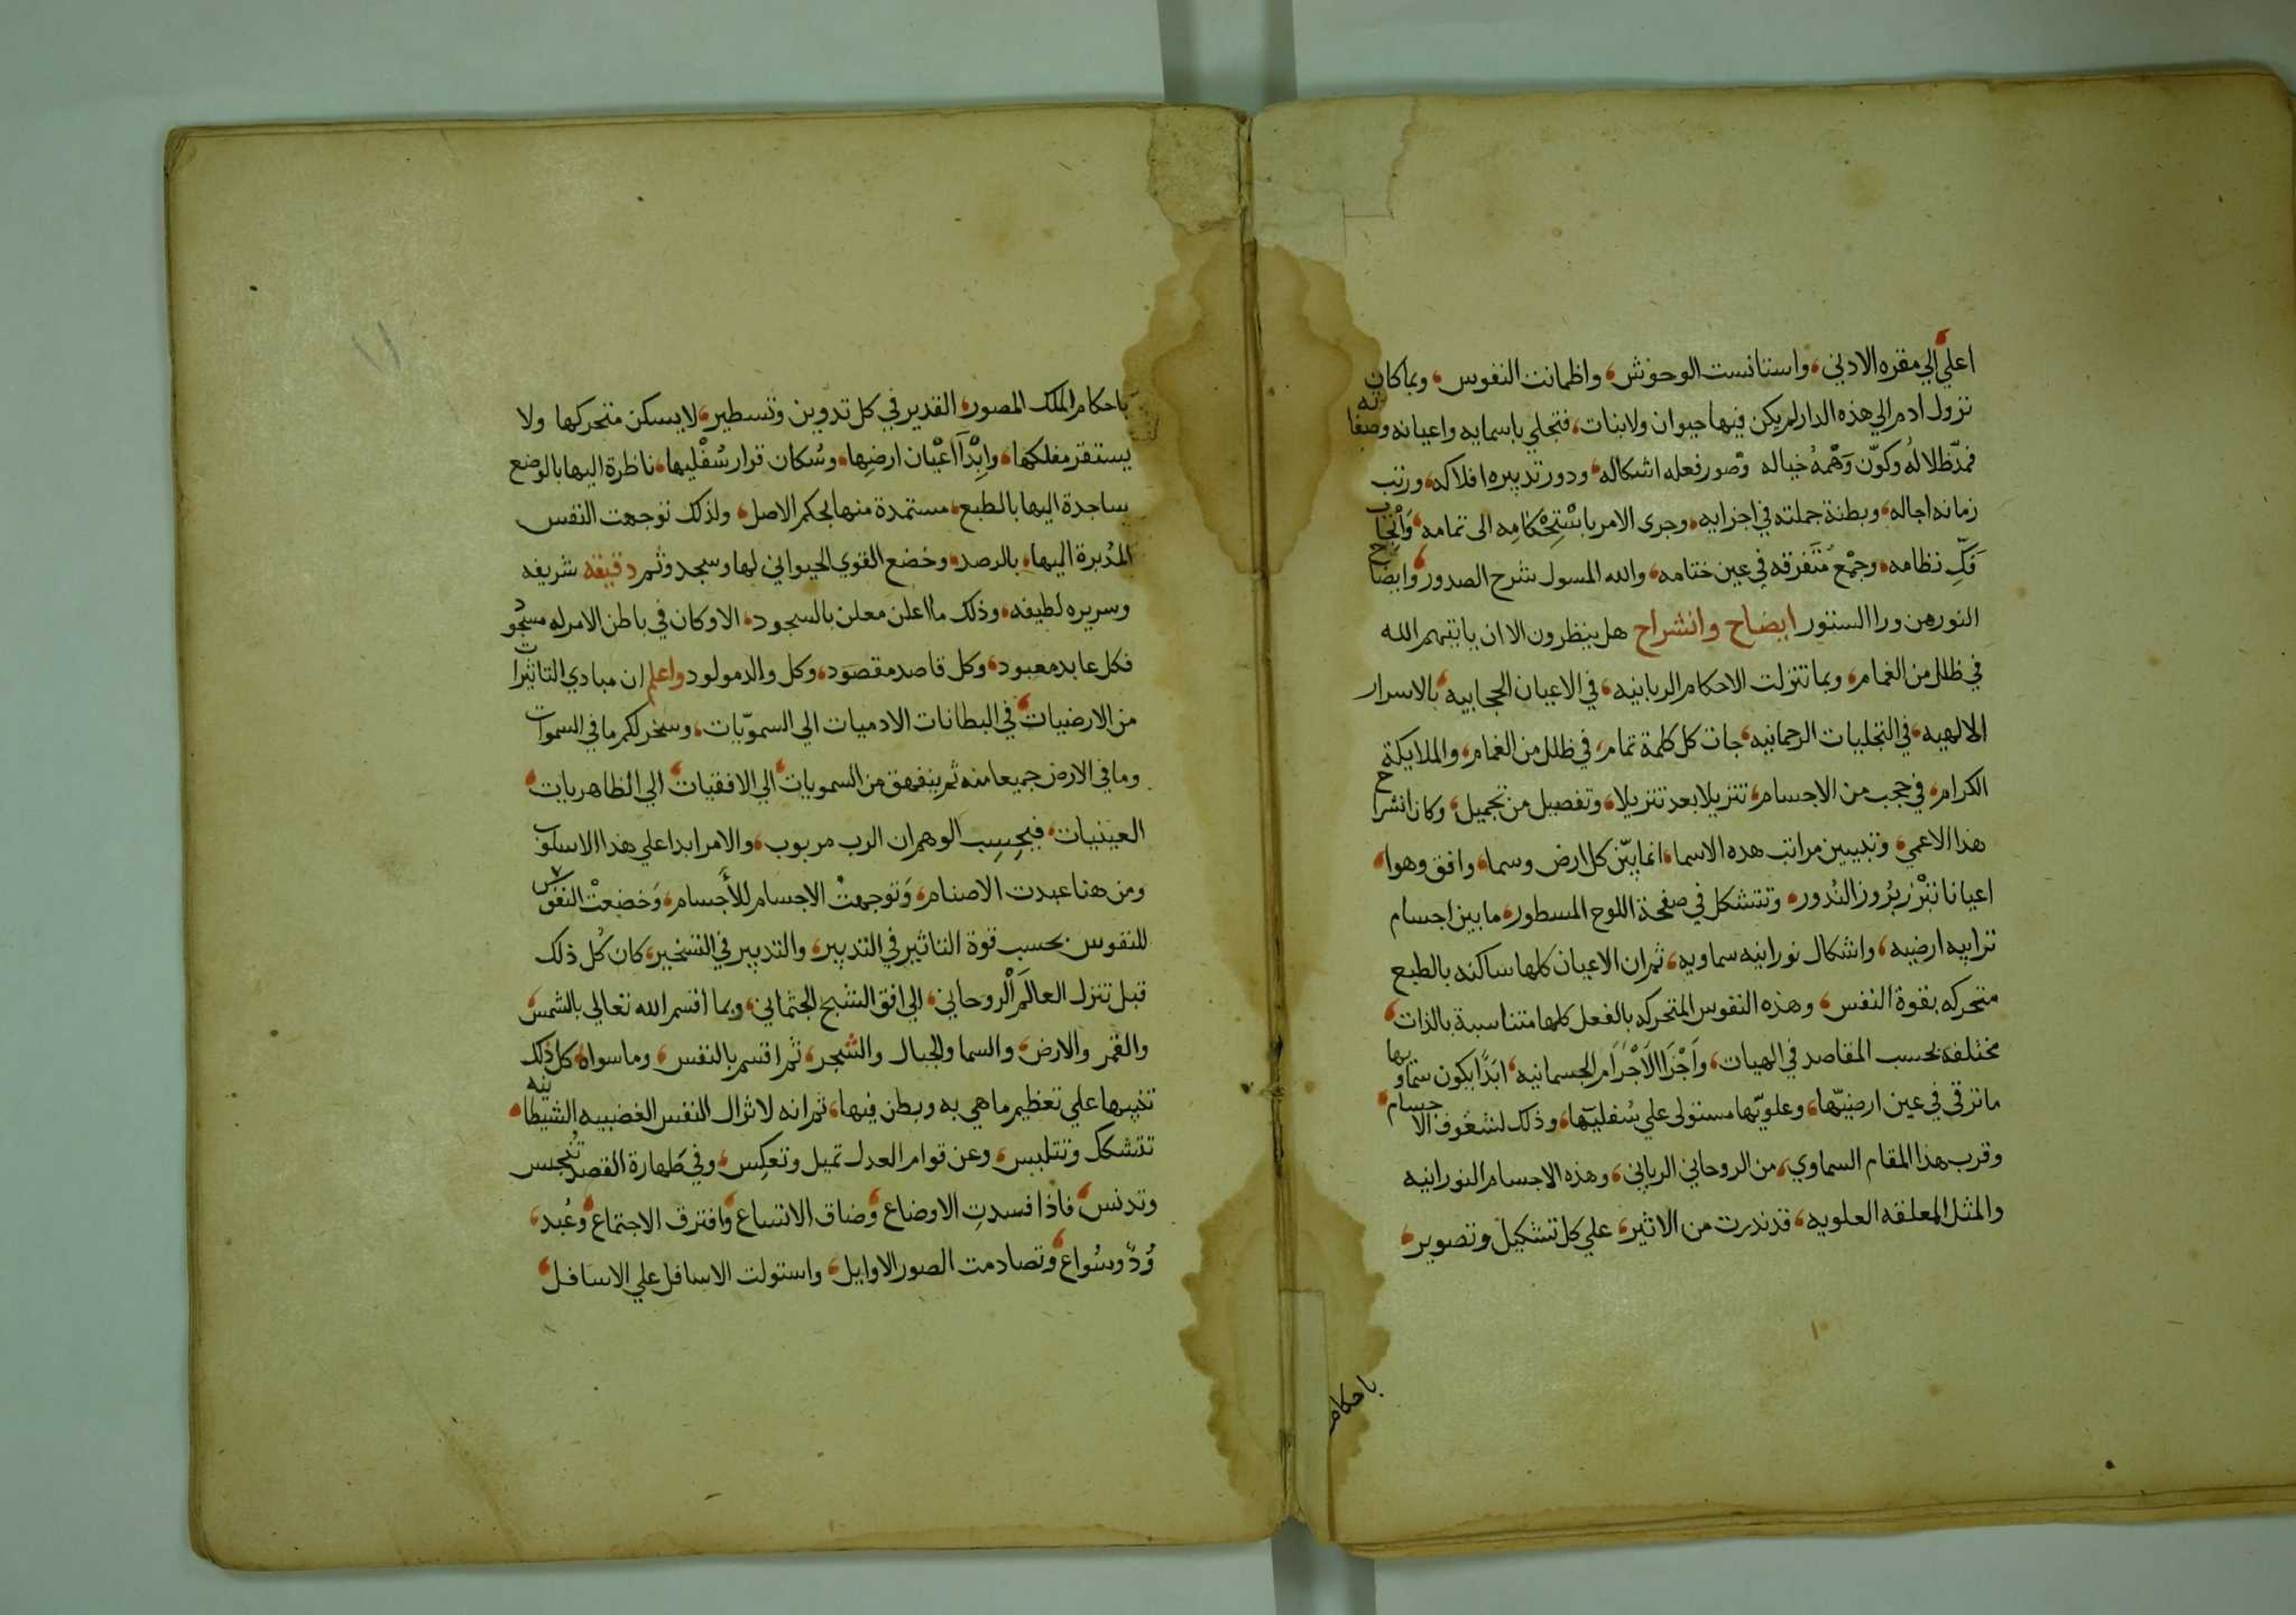 اعلي الي مقره الادني، واستانست الوحوش، واظمانت النفوس، وبما كان
نزول ادم الي هذه الدار لم يكن فيها حيوان ولا نبات، فتجلي باسمايه واعيانه وصفاته
فمدّ ظلاله وكوّن وَهْمهُ خياله وصور فعله اشكاله، ودور تدبيره افلاكه، ورتب
زمانه اجاله، وبطنة جملته في اجزايه، وجري الامر باسْتِحْكامِه الى تمامه، وَانْجَاب
فكّ نظامه، وجمْع مُتَفرقه في عين ختامه، والله المسول شرح الصدور، وايضاح
النور من ورا الستور ايضاح وانشراح هل ينظرون الا ان ياتيهم الله
في ظلل من الغمام، وبما تنزلت الاحكام الربانيه، في الاعيان الحجابيه، بالاسرار
الالهيه، في التجليات الرحمانيه، جات كل كلمة تمام، في ظلل من الغمام، والملايكة
الكرام، في حجب من الاجسام، تنزيلا بعد تنزيلا، وتفصيل من تجميل، وكان انشراح
هذا الاعمي، وتبيين مراتب هده الاسما، انما بيّن كل ارض وسما، وافق وهوا،
اعيانا تبْرز بُروز البُدور، وتتشكل في صفحة اللوح المسطور، ما بين اجسام
ترابيه ارضيه، واشكال نورانيه سماويه، ثم ان الاعيان كلها ساكنه بالطبع
متحركه بقوة النفس، وهذه النفوس المتحركه بالفعل كلها متناسبة بالذات،
مختلفة بحسب المقاصد في الهيات، وَاَجْزَا الاَجْرَام الجسمانيه، ابَدًا يكون سماويها
ما ترقي في عين ارضيّها، وعلويّها مستولى علي سُفليّها، وذلك لشغوف الاجسام،
وقرب هذا المقام السماوي، من الروحاني الرباني، وهذه الاجسام النورانيه
والمثل المعلقه العلويه، قد ندرت من الاثير، علي كل تشكيل وتصوير،
باحكام
باحكام الملك المصور، القدير في كل تدوين وتسطير، لا يسكن متحركها ولا
يستقر مفلكها، وابدًا اعْيَان ارضِها، وسُكان قرار سُفْليها، ناظرة اليها بالوضع
ساجدة اليها بالطبع، مستمدة منها بحكم الاصل، ولذلك توجهت النفس
المدُبرة اليها، بالرصد، وخضع القوي الحيواني لها وسجد وثم دقيقه شريفه
وسريره لطيفه، وذلك ما اعلن معلن بالسجود، الا وكان في باطن الامر له مسجود
فكل عابد معبود، وكل قاصد مقصود، وكل والد مولود واعلم ان مبادي التاثيرات
من الارضيات، في البطانات الادميات الي السمويّات، وسخر لكم ما في السموات
وما في الارض جميعا منه ثم ينفهق من السمويات، الي الافقيات، الي الظاهريات،
العينيات، فبحسب الوهم ان الرب مربوب، والامر ابدا علي هذا الاسلوب
ومن هنا عبدت الاصنام، وَتوجهتْ الاجسام للأجسام، وَخضعتْ النفوس
للنفوس بحسب قوة التاثير في التدبير، والتدبير في التسخير، كان كُل ذلك
قبل تنزل العالَم الْروحاني، الي افق الشبح الجثماني، وبما اقسم الله تعالي بالشمس،
والقمر والارض، والسما والجبال والشجر، ثم اقسم بالنفس، وما سواه، كل ذلك
تنبيها علي تعظيم ما هي به وبطن فيها، ثم انه لا تزال النفس الغضبيه الشيطانيه،
تتشكل وتتلبس، وعن قوام العدل تميل وتعكِس، وفي طَهارة القصد تُنجس
وتدنس، فاذا فسدتِ الاوضاع، وضاق الاتساع، وافترق الاجتماع، وعُبد،
وُدّ وسُواع، وتصادمت الصور الاوايل، واستولت الاسافل علي الاسافل،